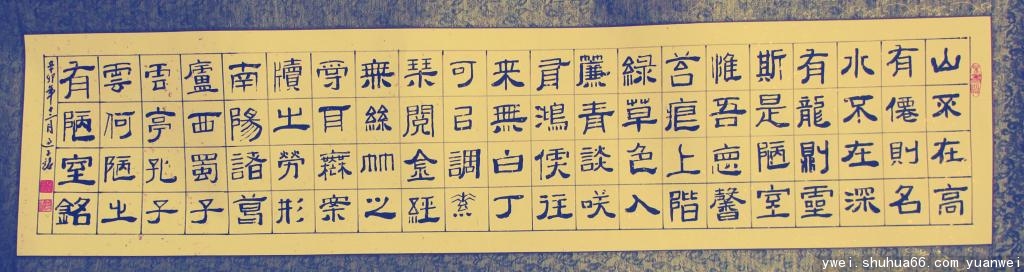 山不在高
有僊則名
水不在深
有龍則靈
斯是陋室
惟吾惪馨
苔痕上階
綠草色入
簾青談咲
有鴻儒往
来無白丁
可㠯調素
琴閱金經
無絲竹之
耳無案
牘之勞形
南陽諸葛
廬西蜀子
雲亭孔子
雲何陋之
有陋室銘
辛卯年十二月
ywei.shuhua66.com yuanwei